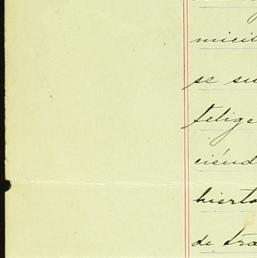 micil
se su
felige
ciénd
hierta
de tra